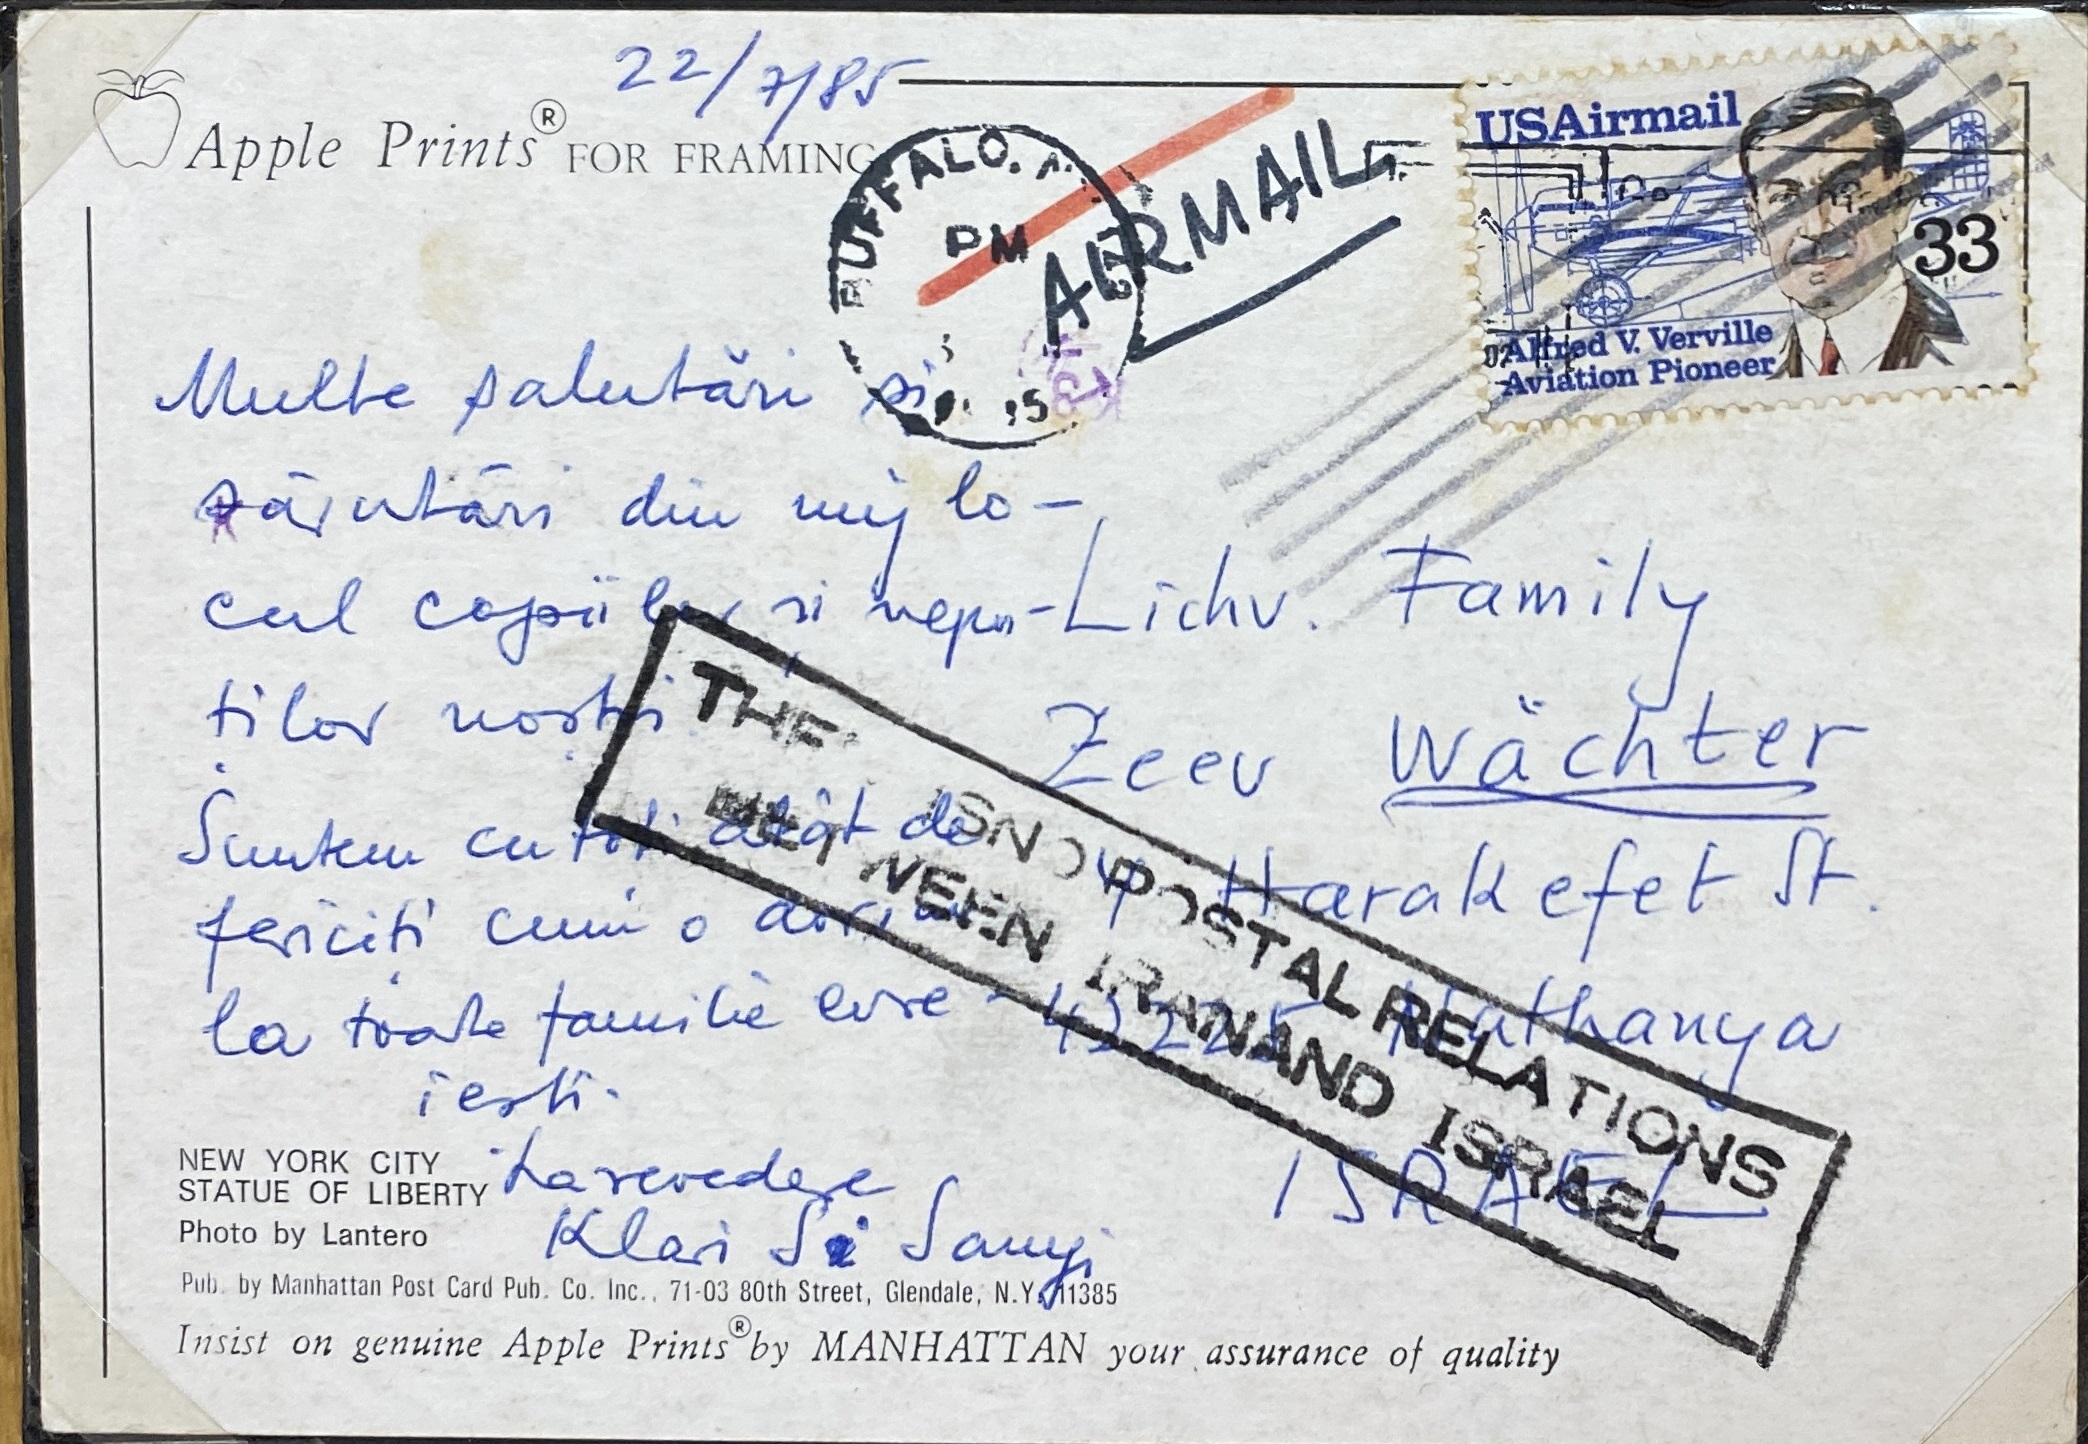 22/7/85
Apple Prints® FOR FRAMING
BUFFALO, N.
PM
AIRMAIL
USAirmail
33
Alfred V. Verville
Aviation Pioneer
Multe salutări și
sărutări din mijlo-
cul copiilor și nepo-
tilor noștri.
Suntem cu toți atât de
fericiți cum o dorim
la toate familie evre-
iești.
La revedere
Klari Si Samyi
Lichv. Family
Zeev Wächter
4 Harakefet St.
42225 Nathanya
ISRAEL
THE IS NO POSTAL RELATIONS
BETWEEN IRAN AND ISRAEL
NEW YORK CITY
STATUE OF LIBERTY
Photo by Lantero
Pub. by Manhattan Post Card Pub. Co. Inc., 71-03 80th Street, Glendale, N.Y. 11385
Insist on genuine Apple Prints® by MANHATTAN your assurance of quality